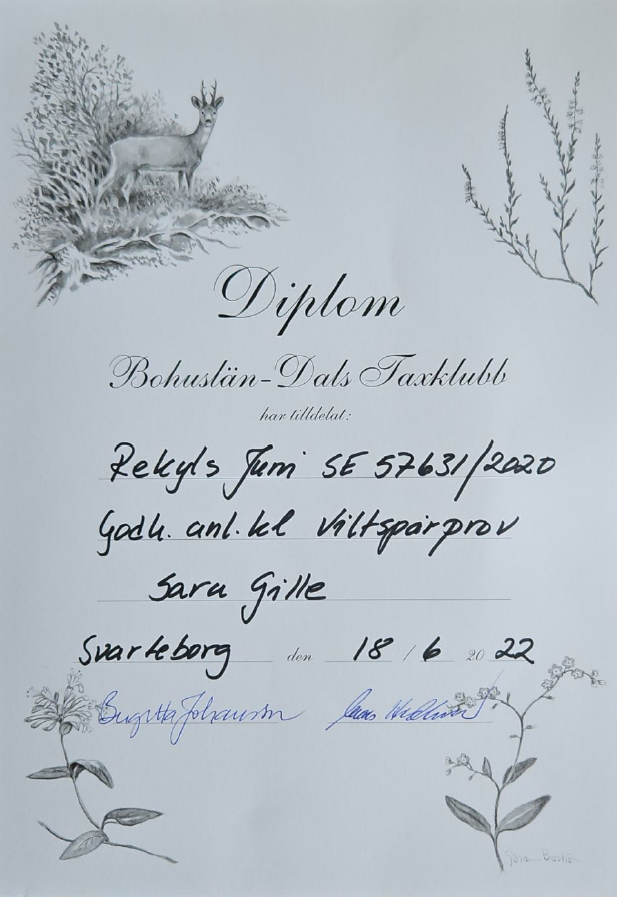 Diplom
Bohuslän-Dals Taxklubb
har tilldelat:
Rekyls Juni SE 57631/2020
Godk. anl. kl Viltspårprov
Sara Gille
Svarteborg den 18 / 6 20 22
Birgitta Johansson